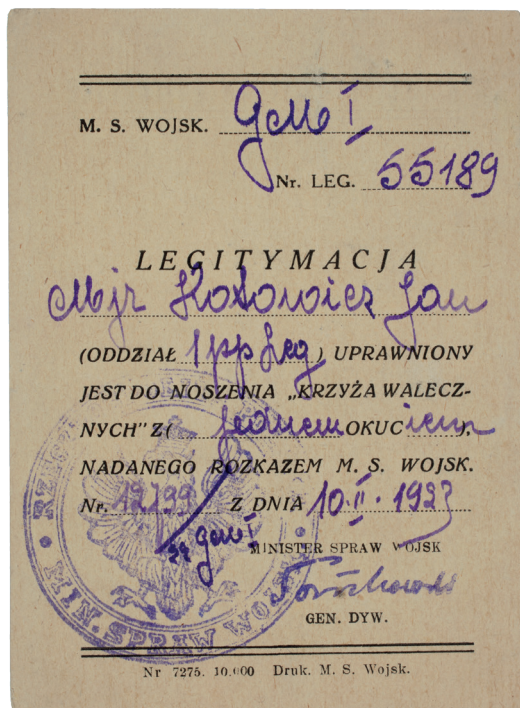 M. S. WOJSK. GM I
Nr. LEG. 55189
LEGITYMACJA
Mjr Kotowicz Jan
(ODDZIAŁ 1 pp Leg) UPRAWNIONY
JEST DO NOSZENIA „KRZYŻA WALECZ-
NYCH" Z ( jednem OKUCiem ),
NADANEGO ROZKAZEM M. S. WOJSK.
Nr. 12799 Z DNIA 10.II.1923
GM I
MINISTER SPRAW WOJSK
GEN. DYW.
MIN. SPRAW WOJSK
Nr 7275. 10.000 Druk. M. S. Wojsk.